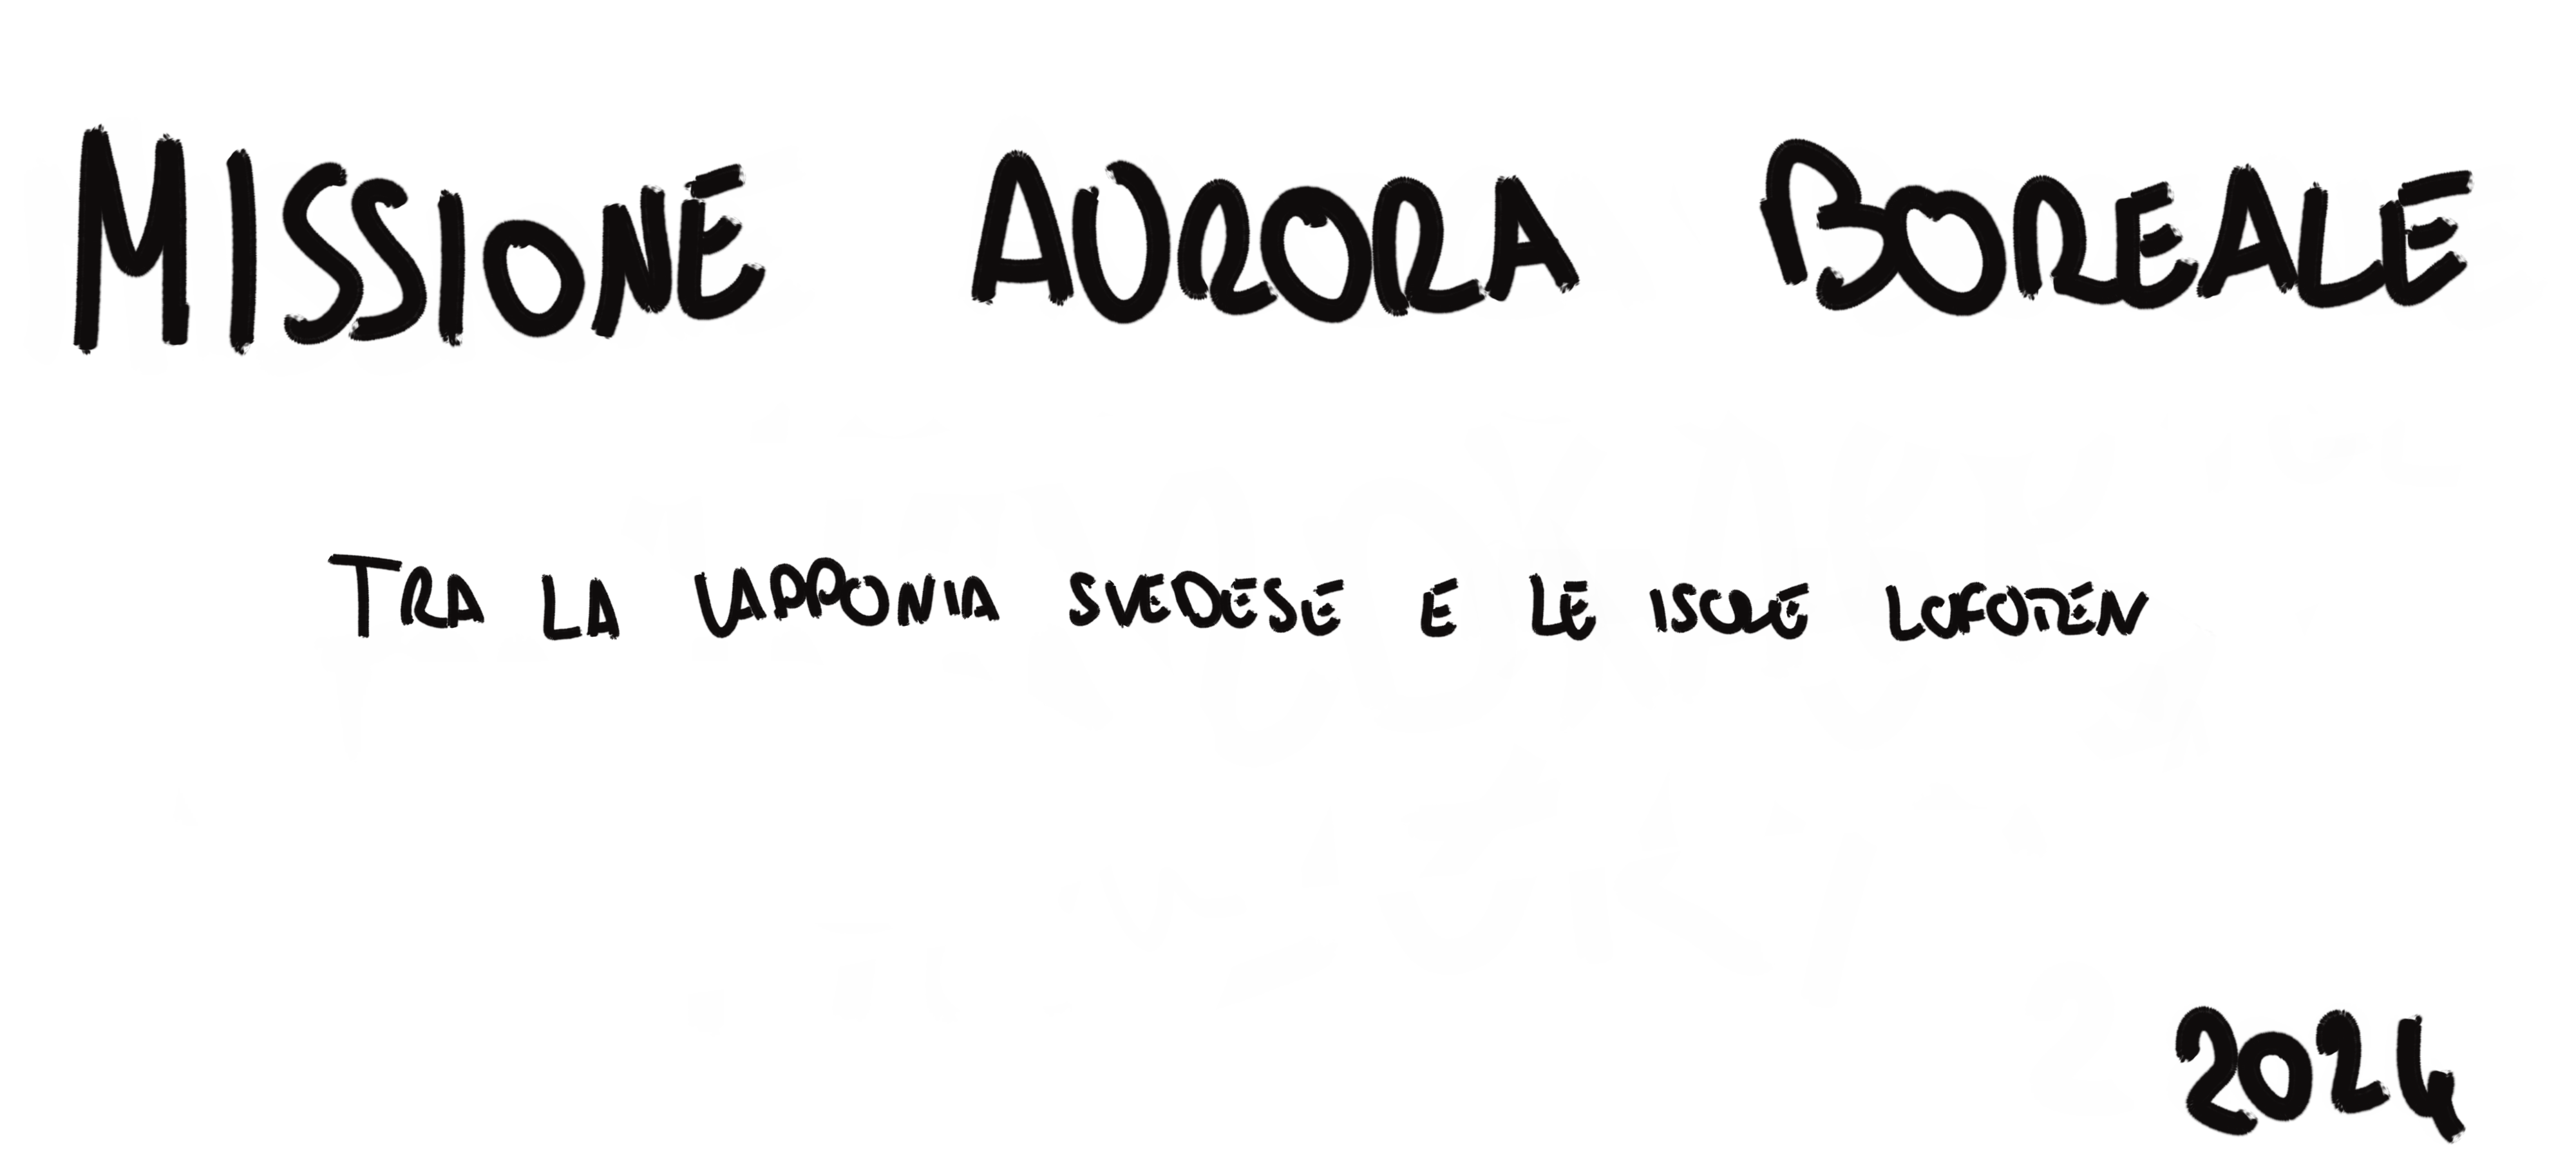 MISSIONE AURORA BOREALE
TRA LA LAPPONIA SVEDESE E LE ISOLE LOFOTEN
2024